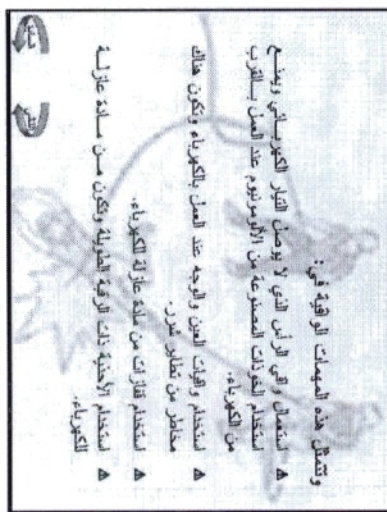 وتتمثل هذه المهمات الواقية في:
استعمال واقي الرأس الذي لا يوصل التيار الكهربائي ويمنع
استخدام الخوذات المصنوعة من الألومونيوم عند العمل بالقرب
من الكهرباء.
استخدام واقيات العين والوجه عند العمل بالكهرباء وتكون هناك
مخاطر من تطاير شرر.
استخدام قفازات من مادة عازلة للكهرباء.
استخدام الأحذية ذات الرقبة الطويلة وتكون من مادة عازلة
للكهرباء.